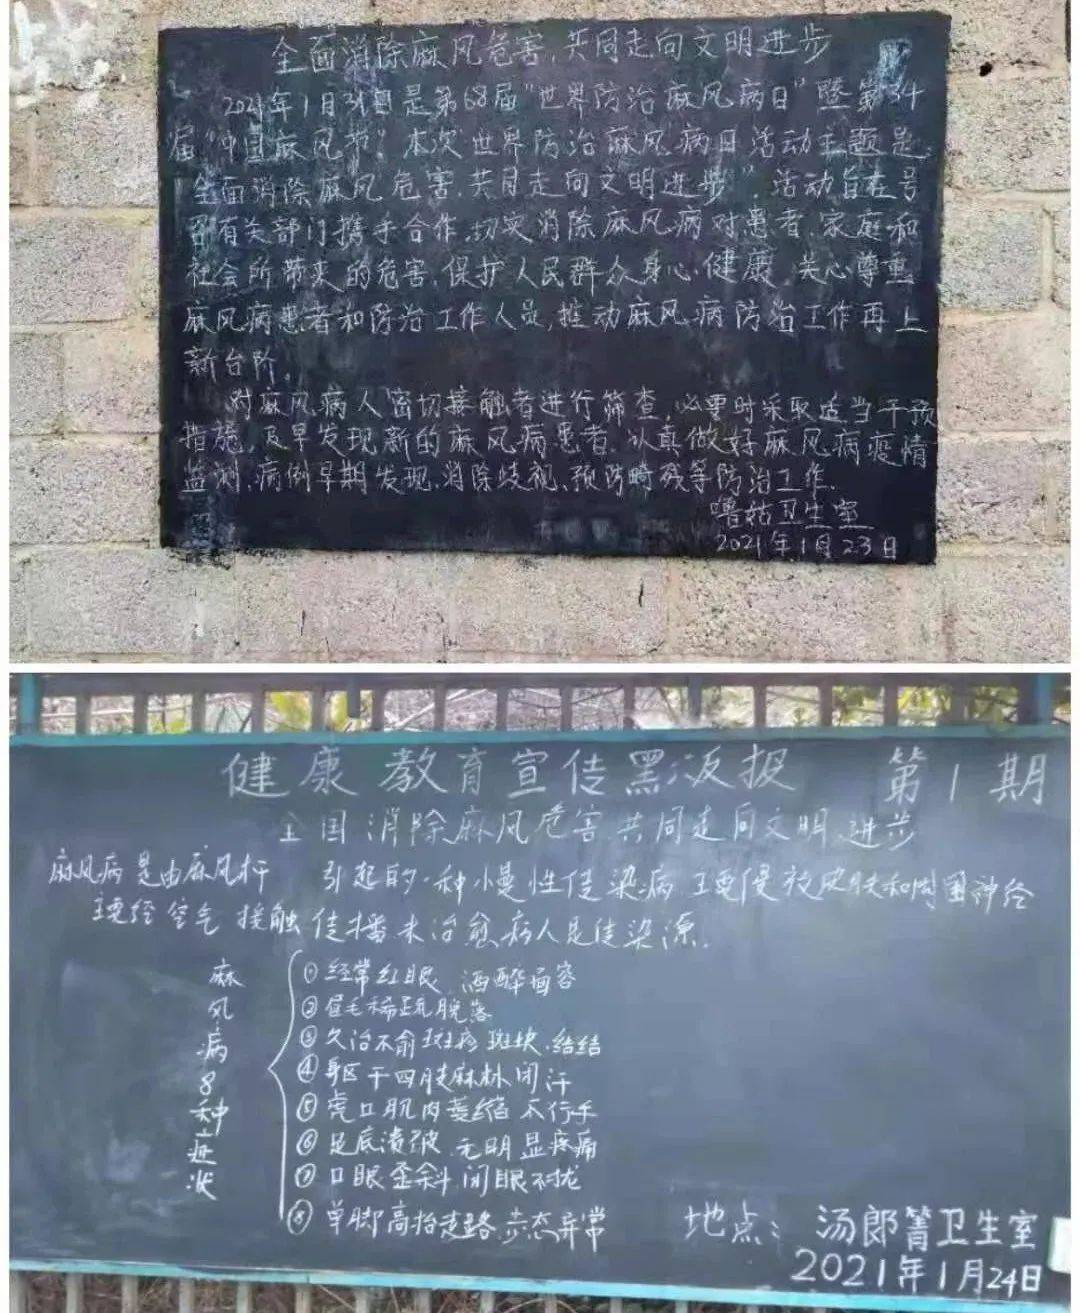 全面消除麻风危害，共同走向文明进步
2021年1月31日是第68届"世界防治麻风病日"暨第34
届"中国麻风节"。本次世界防治麻风病日活动主题是
全面消除麻风危害，共同走向文明进步"活动旨在号
召有关部门携手合作，切实消除麻风病对患者、家庭和
社会所带来的危害，保护人民群众身心健康，关心尊重
麻风病患者和防治工作人员，推动麻风病防治工作再上
新台阶。
对麻风病人密切接触者进行筛查，必要时采取适当干预
措施，及早发现新的麻风病患者，认真做好麻风病疫情
监测，病例早期发现，消除歧视、预防畸残等防治工作。
噜姑卫生室
2021年1月23日
健康教育宣传黑板报 第1期
全国消除麻风危害 共同走向文明进步
麻风病是由麻风杆 引起的一种慢性传染病 主要侵被皮肤和周围神经
主要经空气 接触传播 未治愈病人是传染源.
麻风病8种症状
①经常红眼 酒醉面容
②眉毛稀疏脱落
③久治不俞斑疹 斑块、结结
④身区干四肢麻木 闭汗
⑤虎口肌肉萎缩 爪行手
⑥足底溃破 无明显疼痛
⑦口眼歪斜 闭眼不拢
⑧单脚高抬走路 步态异常
地点：汤郎箐卫生室
2021年1月24日